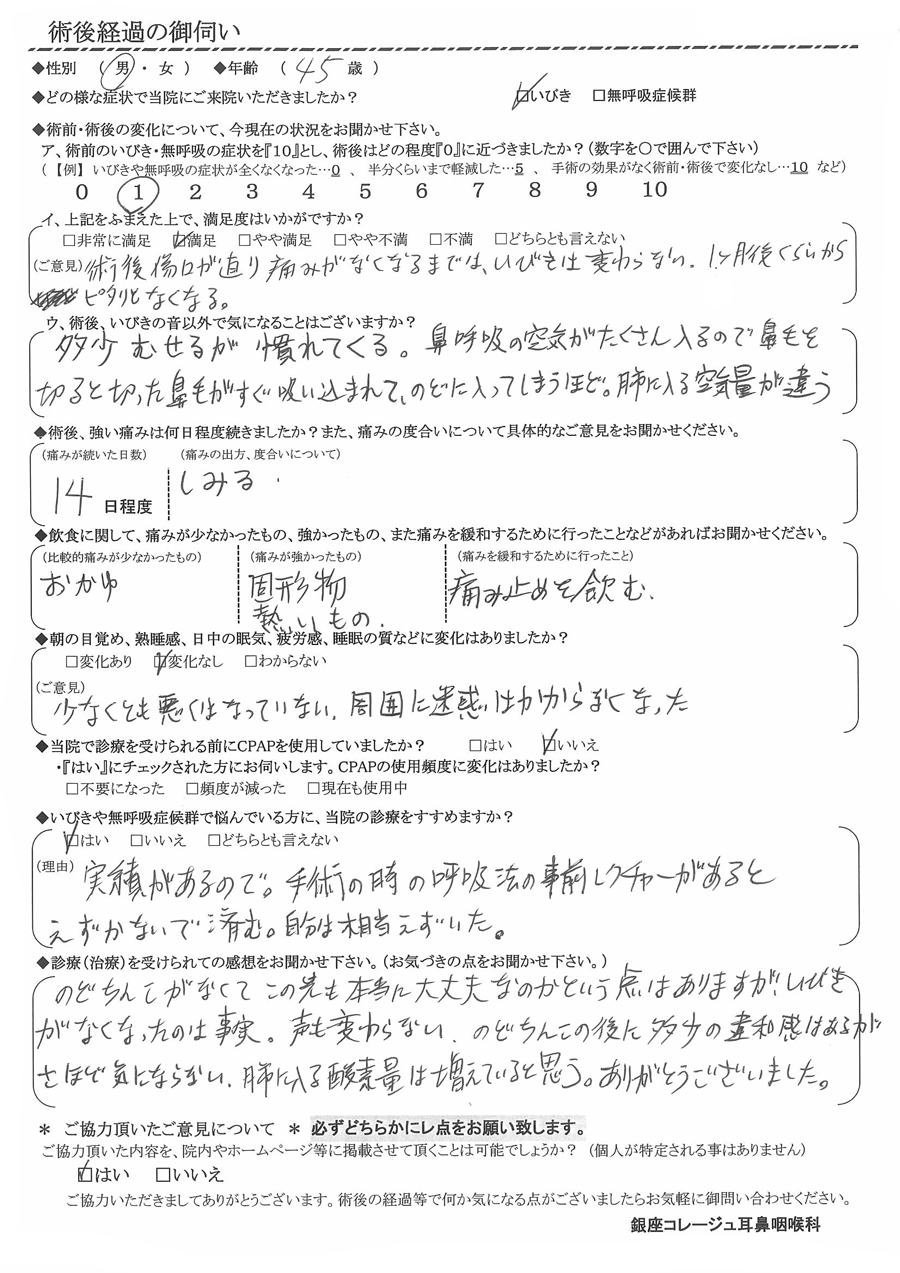 術後経過の御伺い
◆性別 （ 男 ・ 女 ） ◆年齢 （ 45 歳 ）
◆どの様な症状で当院にご来院いただきましたか？ ☑いびき □無呼吸症候群
◆術前・術後の変化について、今現在の状況をお聞かせ下さい。
ア、術前のいびき・無呼吸の症状を『10』とし、術後はどの程度『0』に近づきましたか？（数字を○で囲んで下さい）
（ 【例】 いびきや無呼吸の症状が全くなくなった…0 、 半分くらいまで軽減した…5 、 手術の効果がなく術前・術後で変化なし…10 など）
0 1 2 3 4 5 6 7 8 9 10
イ、上記をふまえた上で、満足度はいかがですか？
□非常に満足 ☑満足 □やや満足 □やや不満 □不満 □どちらとも言えない
（ご意見） 術後傷口が直り痛みがなくなるまでは、いびきは変わらない．1ヶ月後くらいから
ピタリとなくなる。
ウ、術後、いびきの音以外で気になることはございますか？
多少むせるが慣れてくる。鼻呼吸の空気がたくさん入るので鼻毛を
切ると切った鼻毛がすぐ吸い込まれて、のどに入ってしまうほど。肺に入る空気量が違う
◆術後、強い痛みは何日程度続きましたか？また、痛みの度合いについて具体的なご意見をお聞かせください。
（痛みが続いた日数） （痛みの出方、度合いについて）
14 日程度 しみる．
◆飲食に関して、痛みが少なかったもの、強かったもの、また痛みを緩和するために行ったことなどがあればお聞かせください。
（比較的痛みが少なかったもの） （痛みが強かったもの） （痛みを緩和するために行ったこと）
おかゆ 固形物 痛み止めを飲む．
熱いもの．
◆朝の目覚め、熟睡感、日中の眠気、疲労感、睡眠の質などに変化はありましたか？
□変化あり ☑変化なし □わからない
（ご意見）
少なくとも悪くはなっていない．周囲に迷惑はかからなくなった
◆当院で診療を受けられる前にCPAPを使用していましたか？ □はい ☑いいえ
・『はい』にチェックされた方にお伺いします。CPAPの使用頻度に変化はありましたか？
□不要になった □頻度が減った □現在も使用中
◆いびきや無呼吸症候群で悩んでいる方に、当院の診療をすすめますか？
☑はい □いいえ □どちらとも言えない
（理由） 実績があるので。手術の時の呼吸法の事前レクチャーがあると
えずかないで済む。自分は相当えずいた。
◆診療（治療）を受けられての感想をお聞かせ下さい。（お気づきの点をお聞かせ下さい。）
のどちんこがなくてこの先も本当に大丈夫なのかという点はありますが、いびき
がなくなったのは事実。声も変わらない．のどちんこの後に多少の違和感はあるが
さほど気にならない．肺に入る酸素量は増えていると思う。ありがとうございました。
＊ ご協力頂いたご意見について ＊ 必ずどちらかにレ点をお願い致します。
ご協力頂いた内容を、院内やホームページ等に掲載させて頂くことは可能でしょうか？ （個人が特定される事はありません）
☑はい □いいえ
ご協力いただきましてありがとうございます。術後の経過等で何か気になる点がございましたらお気軽に御問い合わせください。
銀座コレージュ耳鼻咽喉科